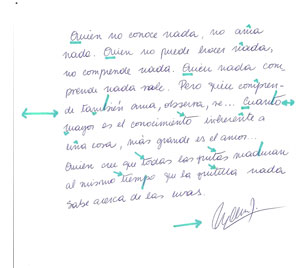 Quien no conoce nada, no ama
nada. Quien no puede hacer nada,
no comprende nada. Quien nada com
prende nada vale. Pero quien compren-
de también ama, observa, ve... Cuanto
mayor es el conocimiento inherente a
una cosa, más grande es el amor...
Quien cree que todas las frutas maduran
al mismo tiempo que la frutilla nada
sabe acerca de las uvas.